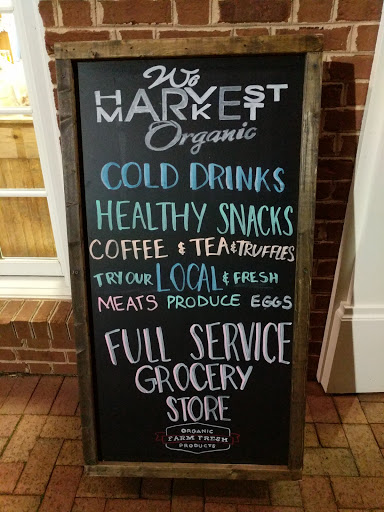 We
HARVEST
MARKET
Organic
COLD DRINKS
HEALTHY SNACKS
COFFEE & TEA & TRUFFLES
TRY OUR LOCAL & FRESH
MEATS PRODUCE EGGS
FULL SERVICE
GROCERY
STORE
ORGANIC
FARM FRESH
PRODUCTS